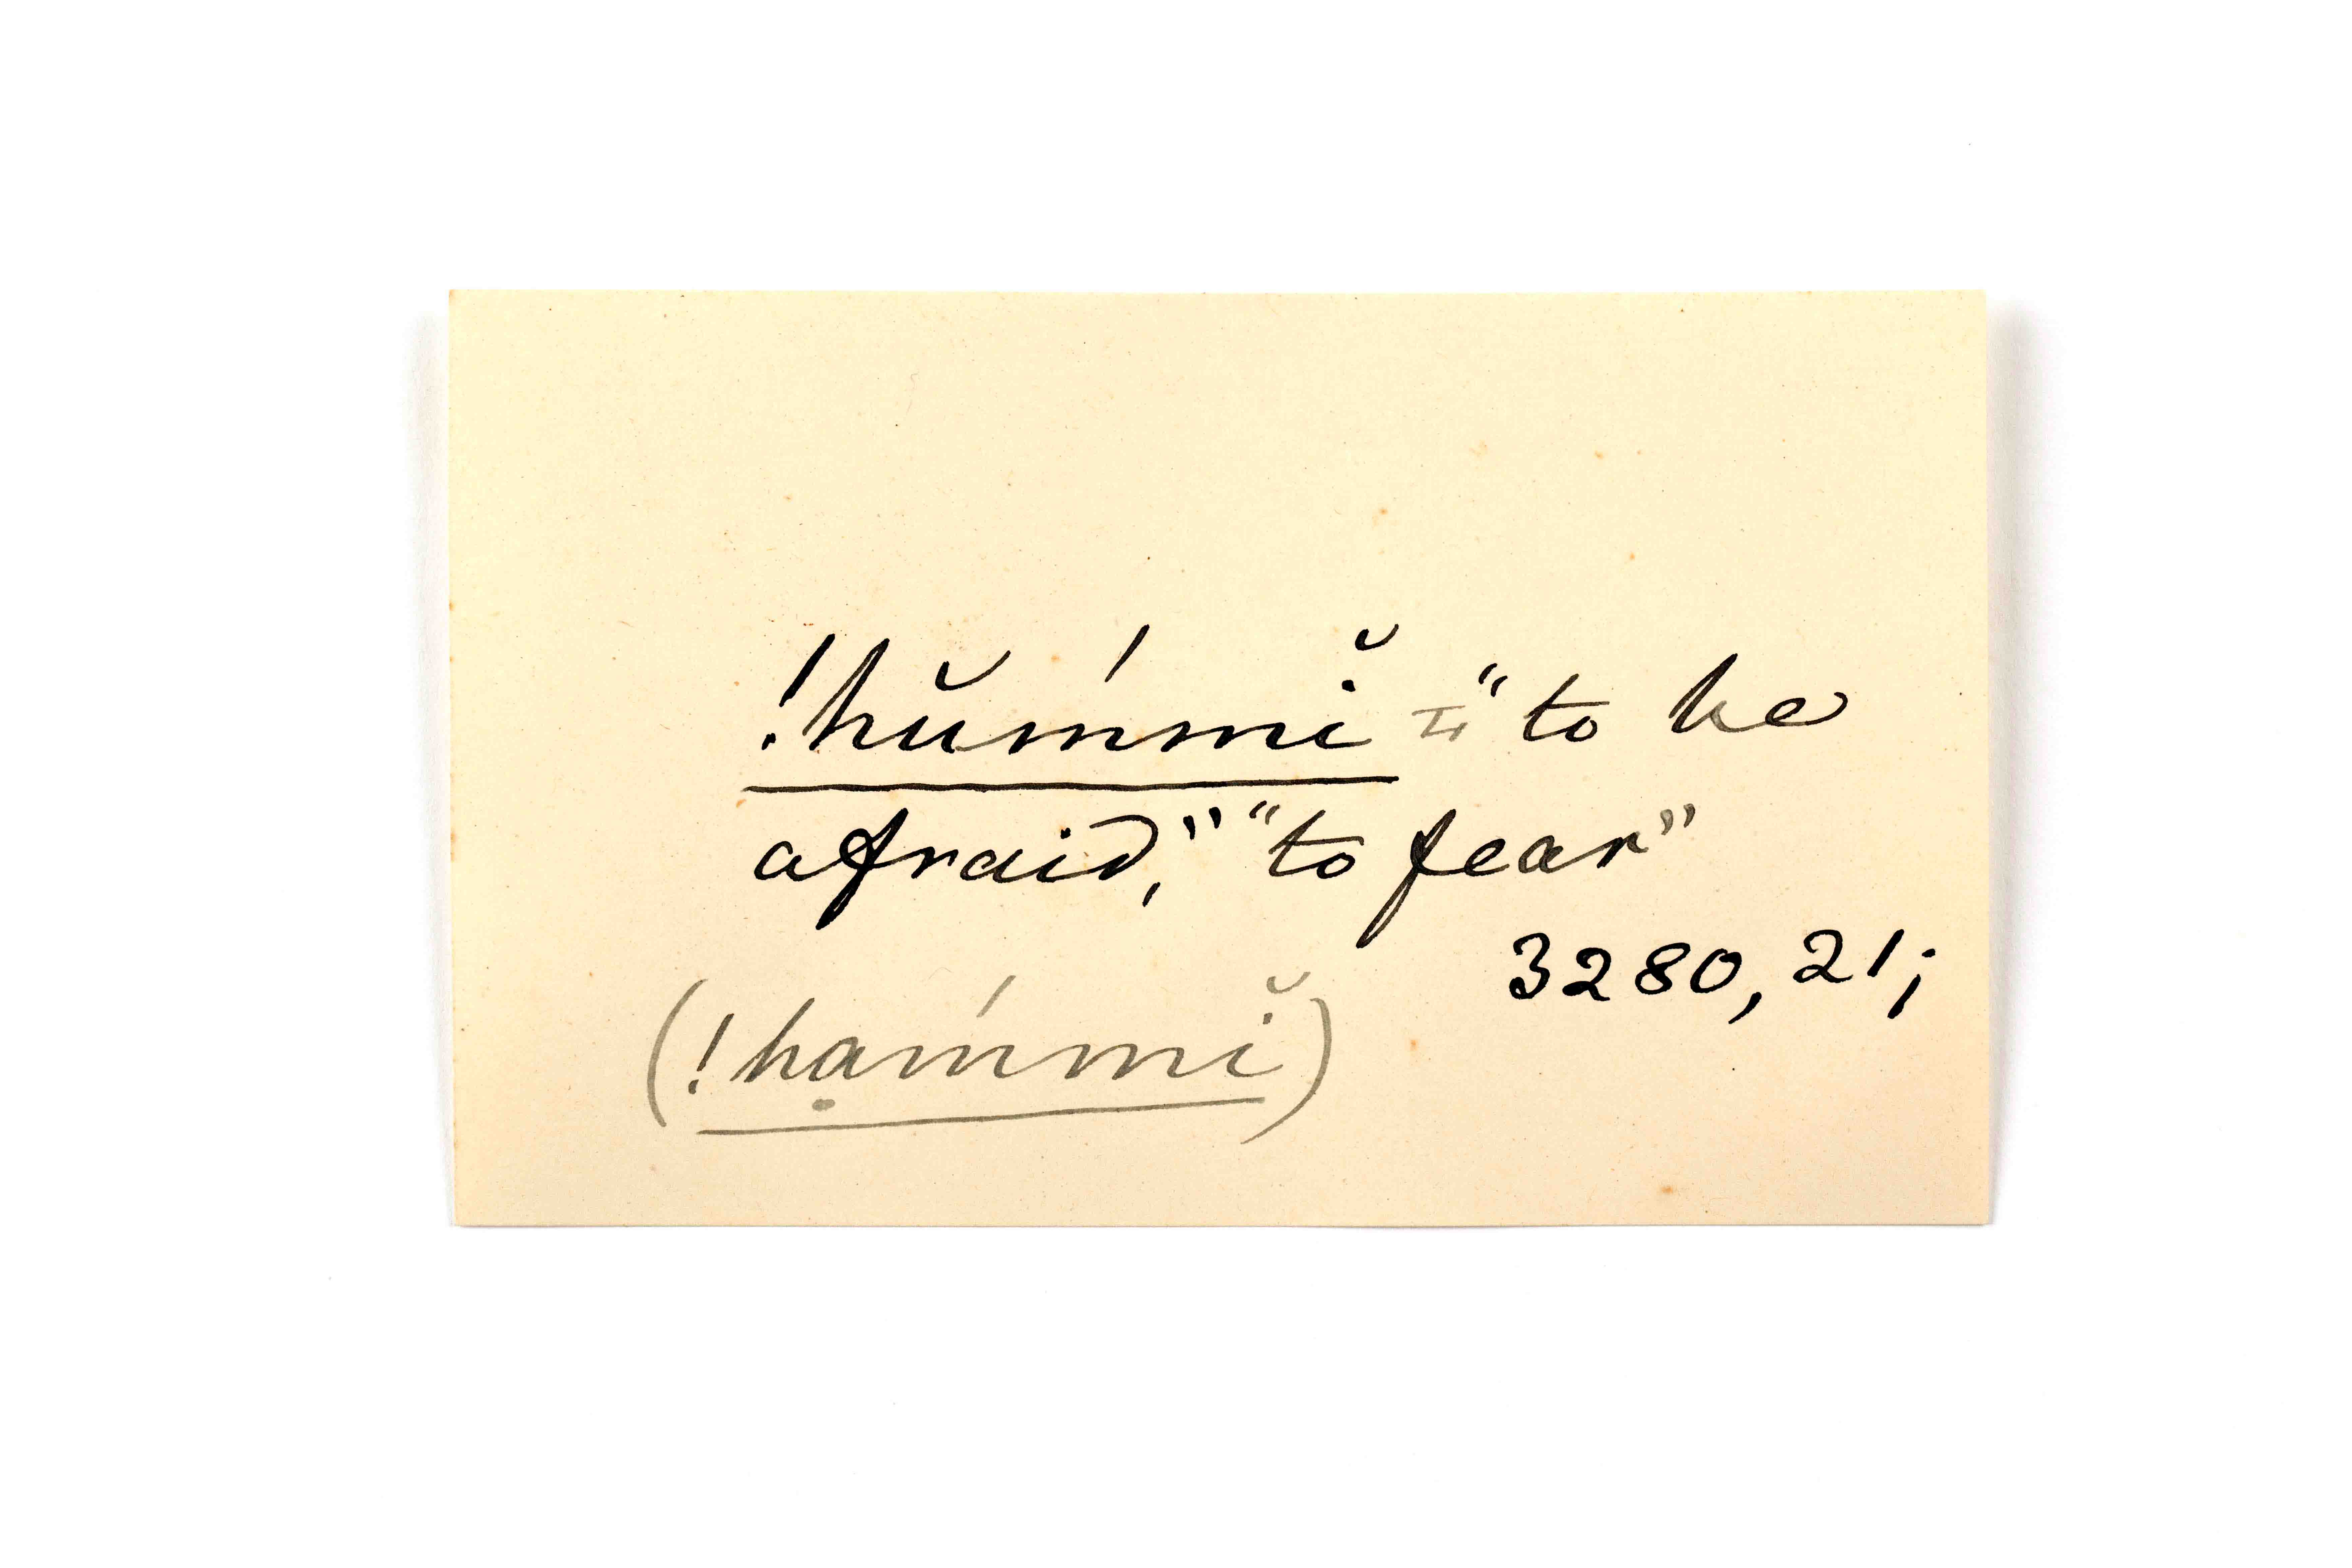 !hŭḿmĭ = "to be
afraid," "to fear"
3280, 21;
(!hạḿmĭ)